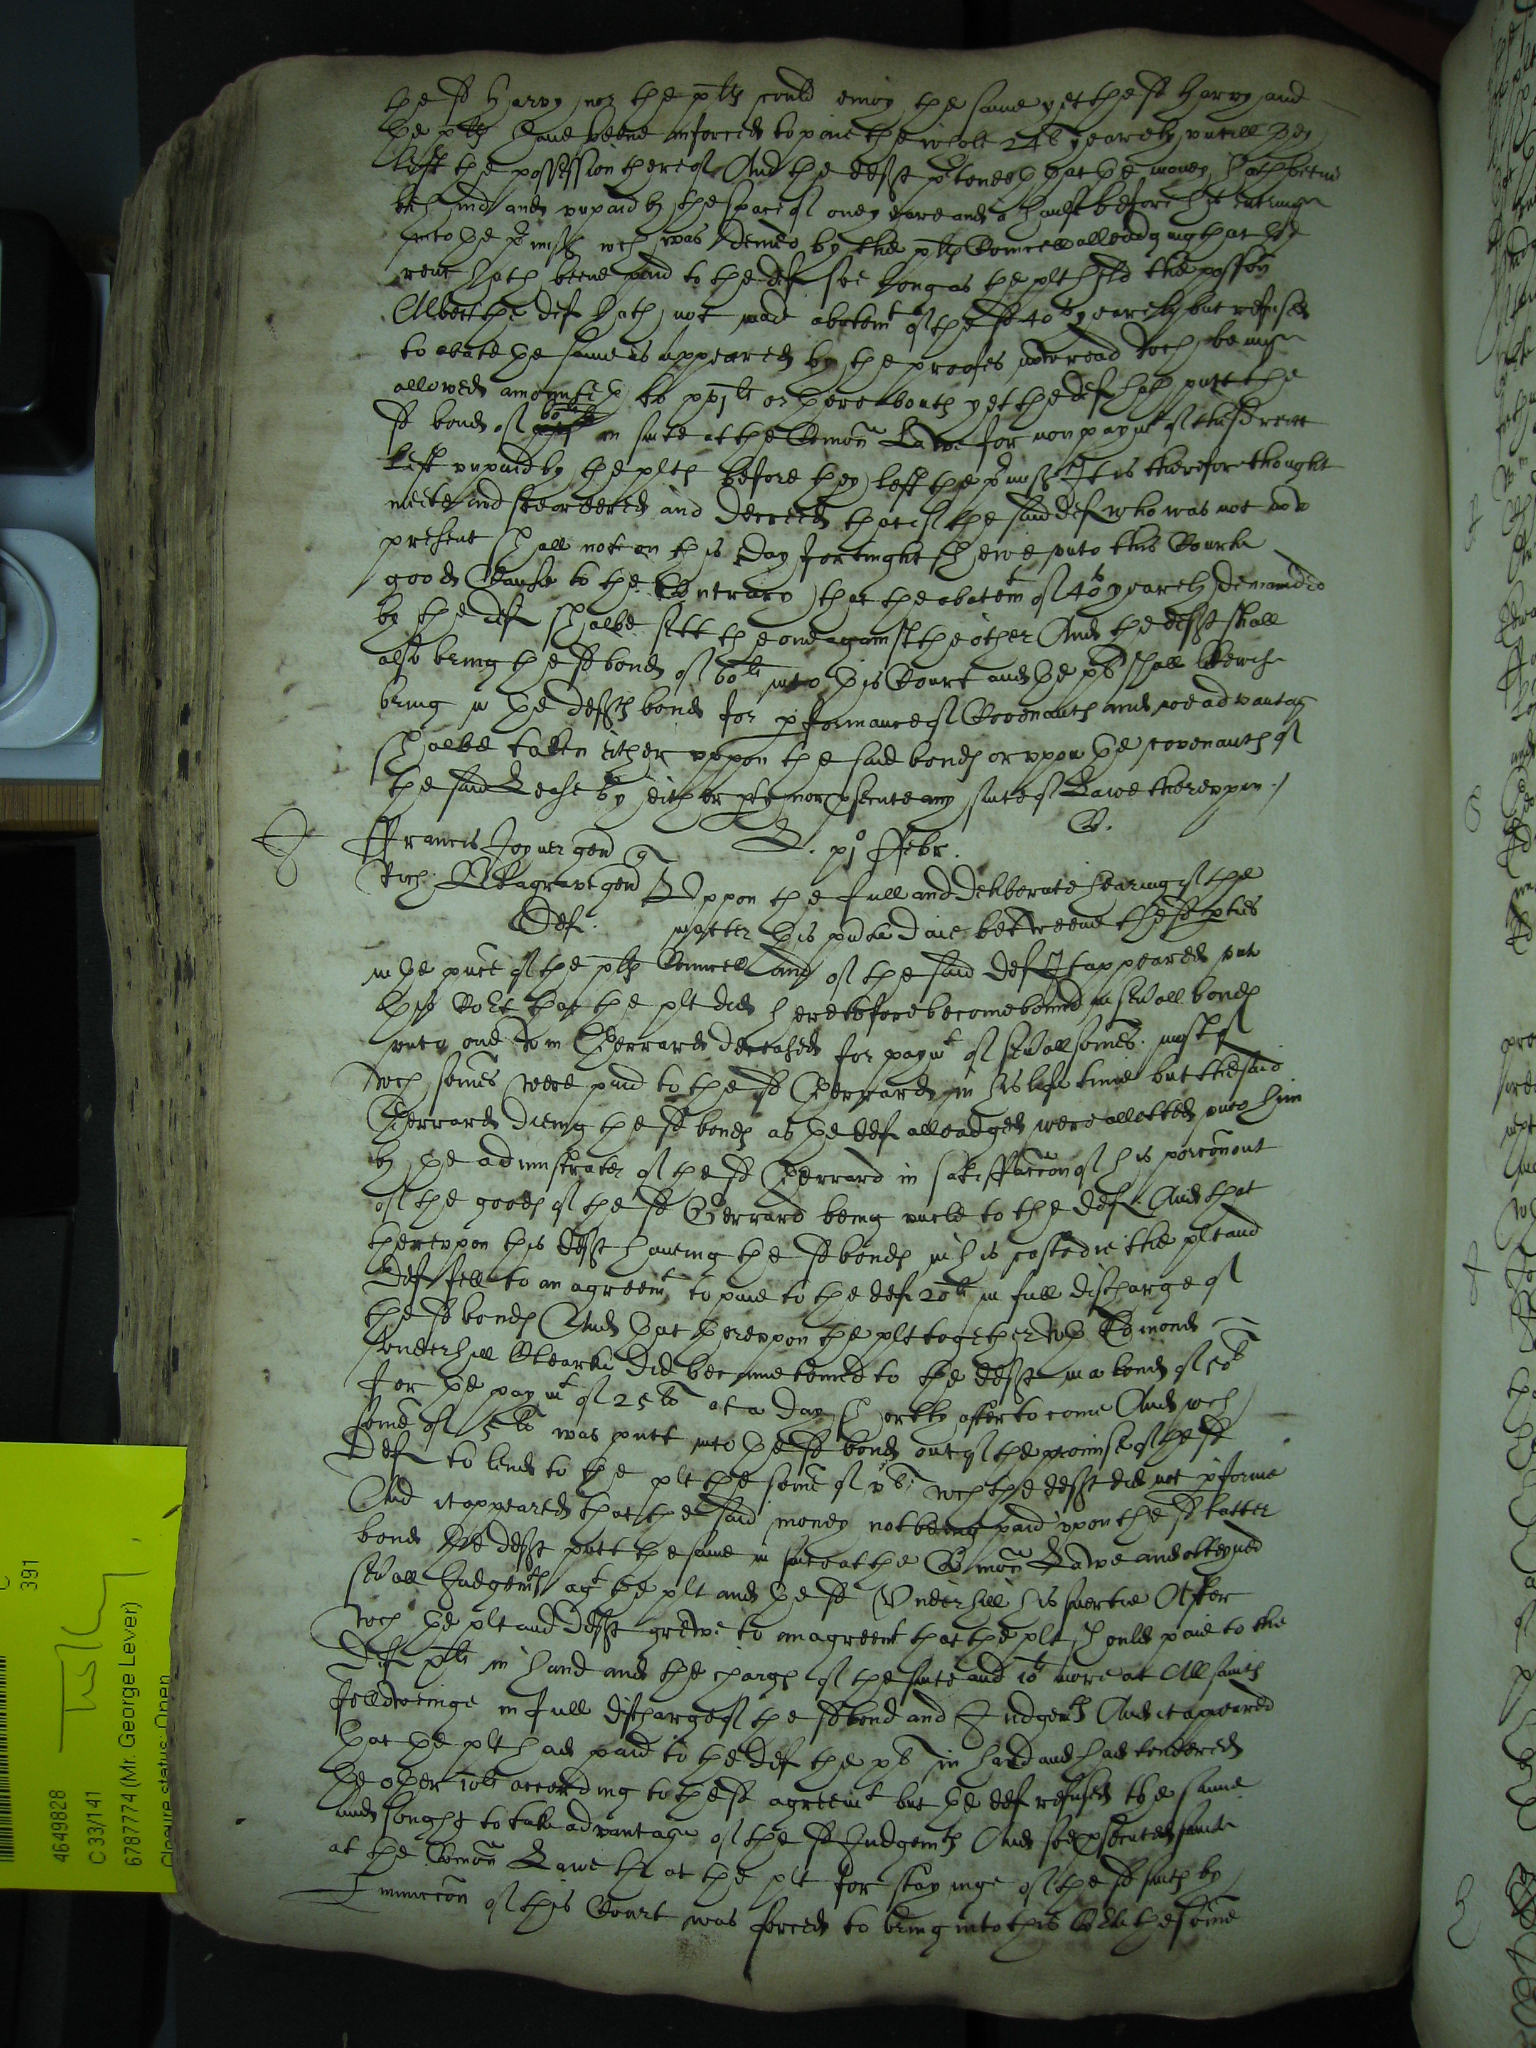 the sd Harvy nor the plts could enioy the same yet the sd Harvy and
the plts haue beene inforced to paie the whole 24li yearely vntill they
left the possession thereof And the defft p'tended that the money hath beene
behind and vnpaid by the space of one yeare and a halfe before his entringe
into the p'misss wch was denied by the plts Councell alleadging that the
rent hath beene paid to the def soe long as the plts held the possion
Albeit the def hath not made abatemt of the sd 40s yearely but refused
to abate the same as appeared by the proofes now read wch beinge
allowed amounteth to xxjli or thereabouts yet the def hath putt the
sd bond of 60li in suite at the Comon Lawe for non paymt of the sd rent
left vnpaid by the plts before they left the p'misss It is therefore thought
meete and soe ordered and decreed that if the said def who was not now
present shall not on this day fortnight shewe vnto this Courte
good Cause to the Contrary that the abatemt of 40s yearely demanded
by the def shalbe sett the one against the other And the defft shall
also bring the sd bond of 60li into this Court and the plts shall likewise
bring in the deffts bond for pformance of Covenauts and noe advantage
shalbe taken either vppon the said bonds or vpon the covenauts of
the said Lease by either ptie nor psecute any suite of Lawe therevpon
Francis Joyner gen q
L. xjo Febr.
B.
Rich: gen
Def.
Vppon the full and deliberate hearing of the
matter this p'nte daie betweene the sd pties
in the p'nce of the plts Councell and of the said def It appeared vnto
this Cort that the plt did heretofore become bound in seuall bonds
vnto one Tom Gerrard deceased for paymt of seuall somes most of
wch somes were paid to the sd Gerrard in his life time but the said
Gerrard dieing the sd bonds as the def alleadged were allotted vnto him
by the administrator of the sd Gerrard in satisfaccon of his porcon out
of the goods of the sd Gerrard being vncle to the def And that
therevpon this defft haueing the sd bonds in his custodie the plt and
def fell to an agreemt to paie to the def 20li in full discharge of
the sd bonds And that therevpon the plt together wth Edmond
Vnderhill Clearke did become bound to the defft in a bond of 50li
for the paymt of 25li at a day shortly after to come And wch
some of 5li was putt into the sd bond out of the promise of the sd
def to lend to the plt the some of vli wch the defft did not p'forme
And it appeared that the said money not being paid vpon the sd latter
bond the defft putt the same in suite at the Comon Lawe and obteyned
seuall Judgemts agt the plt and the sd Vnderhill his suertie After
wch the plt and defft grewe to an agreemt that the plt should paie to the
def xli in hand and the charges of the suite and 10li more at All saints
followeinge in full discharge of the sd bond and Judgemts And it appeared
that the plt had paid to the def the xli in hand and had tendered
the other 10li according to the sd agreemt but the def refused the same
and sought to take advantage of the sd Judgemts And soe psecuted suite
at the Comon Lawe that the plt for stayinge of the sd suits by
Iniunccon of this Court was forced to bring into this Cort the some
391
4649828
C 33/141
6787774 (Mr. George Lever)
Closure status: Open